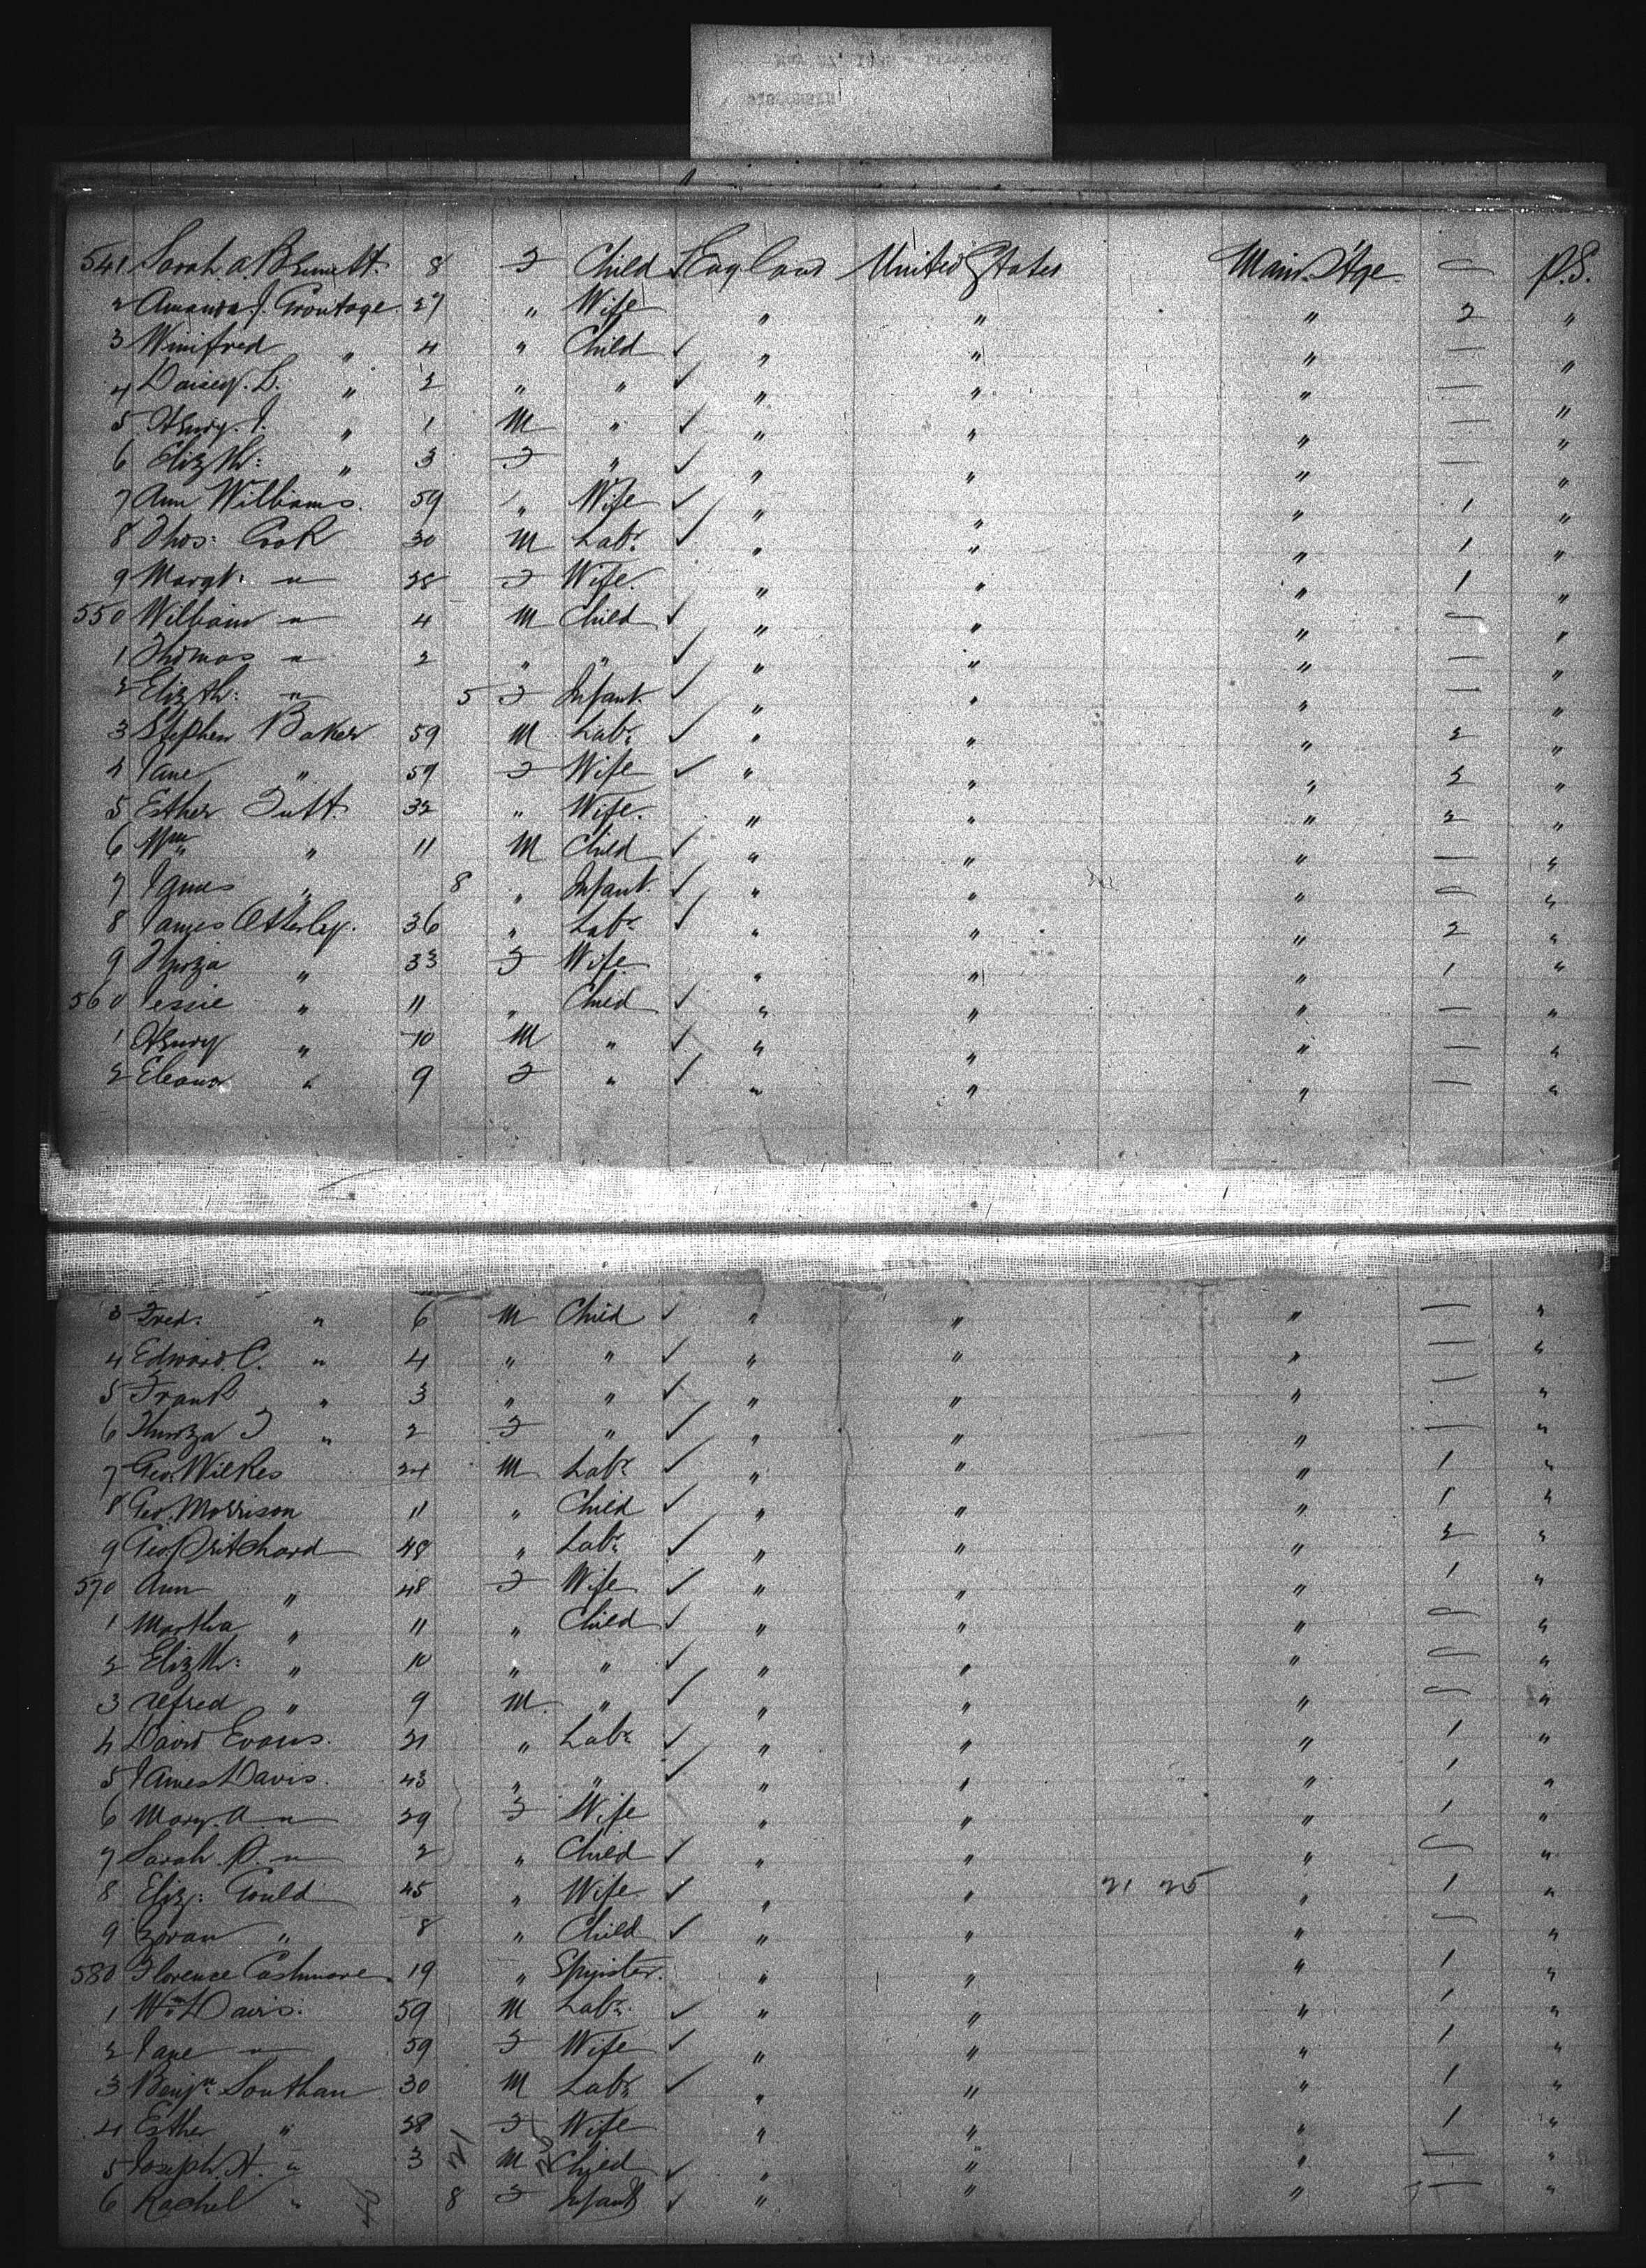 541 Sarah A. Bennett. 8 F Child ✓ England United States Main. Stge — P.S.
2 Amanda J. Croutage 27 " Wife " " " 2 "
3 Winifred " 4 " Child ✓ " " " — "
4 Daisey. L. " 2 " " ✓ " " " — "
5 Henry. J. " 1 M " ✓ " " " — "
6 Elizth: " 3 F " ✓ " " " — "
7 Ann Williams. 59 " Wife ✓ " " " 1 "
8 Thos: Cook 30 M Labr. ✓ " " " 1 "
9 Margt: " 28 F Wife. " " " 1 "
550 William " 4 M Child ✓ " " " — "
1 Thomas " 2 " " ✓ " " " — "
2 Elizth: " 5 F Infant. ✓ " " " — "
3 Stephen Baker 59 M Labr. ✓ " " " 2 "
4 Jane " 59 F Wife ✓ " " " 2 "
5 Esther Tutt. 32 " Wife. " " " 2 "
6 Wm " 11 M Child ✓ " " " — "
7 James " 8 " Infant. ✓ " " " — "
8 James Otterley. 36 " Labr. ✓ " " " 2 "
9 Thirza " 33 F Wife " " " 1 "
560 Jessie " 11 " Child ✓ " " " — "
1 Henry " 10 M " ✓ " " " — "
2 Eleanor " 9 F " ✓ " " " — "
3 Fred: " 6 M Child ✓ " " " — "
4 Edward. C. " 4 " " ✓ " " " — "
5 Frank " 3 " " ✓ " " " — "
6 Thirza F " 2 F " ✓ " " " — "
7 Geo. Wilkes 24 M Labr. ✓ " " " 1 "
8 Geo. Morrison 11 " Child ✓ " " " 1 "
9 Geo Pritchard 48 " Labr. ✓ " " " 2 "
570 Ann " 48 F Wife ✓ " " " 1 "
1 Martha " 11 " Child ✓ " " " — "
2 Elizth: " 10 " " ✓ " " " — "
3 Alfred " 9 M " ✓ " " " — "
4 David Evans. 21 " Labr. ✓ " " " 1 "
5 James Davis. 43 " " ✓ " " " 1 "
6 Mary. A. " 29 F Wife " " " 1 "
7 Sarah. P. " 2 " Child ✓ " " " — "
8 Eliz: Gould 45 " Wife ✓ " " 21 25 " 1 "
9 " 8 " Child ✓ " " " — "
580 Florence Cashmore 19 " Spinster. " " " 1 "
1 Wm. Davis. 59 M Labr. ✓ " " " 1 "
2 Jane " 59 F Wife ✓ " " " 1 "
3 Benjn. Southan 30 M Labr. ✓ " " " 1 "
4 Esther " 28 F Wife " " " 1 "
5 Joseph. H. " 3 M Child ✓ " " " — "
6 Rachel " 8 F Infant ✓ " " " — "